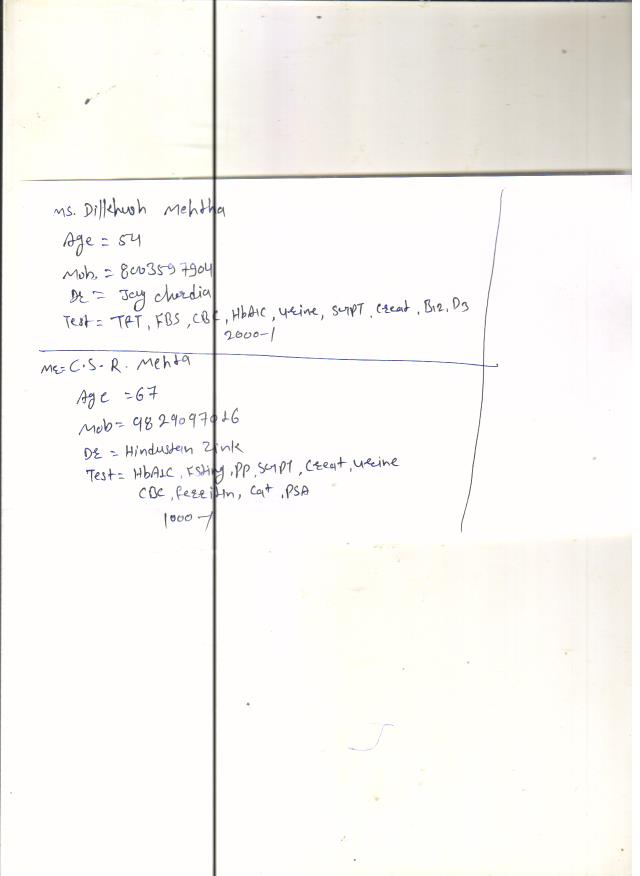 Ms. Dilkhush Mehtha
Age = 54
Mob. = 8003597904
Dr = Jay chordia
Test = TFT, FBS, CBC, HbA1C, Urine, SGPT, Creat, B12, D3
2000-/
Mr = C.S.R. Mehta
Age = 67
Mob = 98290970
Dr = Hindustan Zink
Test = HbA1C, Fsting, PP, SGPT, Creat, urine
CBC, ferritin, Cat, PSA
1000-/